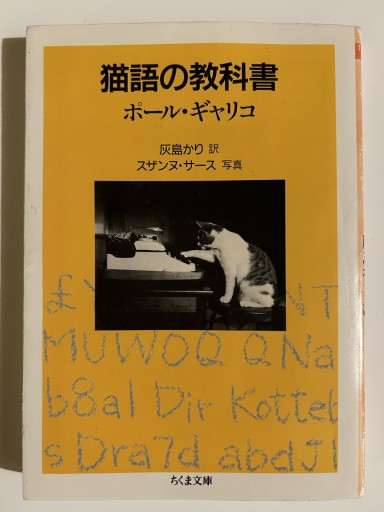 猫語の教科書
ポール・ギャリコ
灰島かり 訳
スザンヌ・サース 写真
£
NT
MUWOQ QNa
b8al Dir Kotteb
s Dra7d abdJ!
ちくま文庫